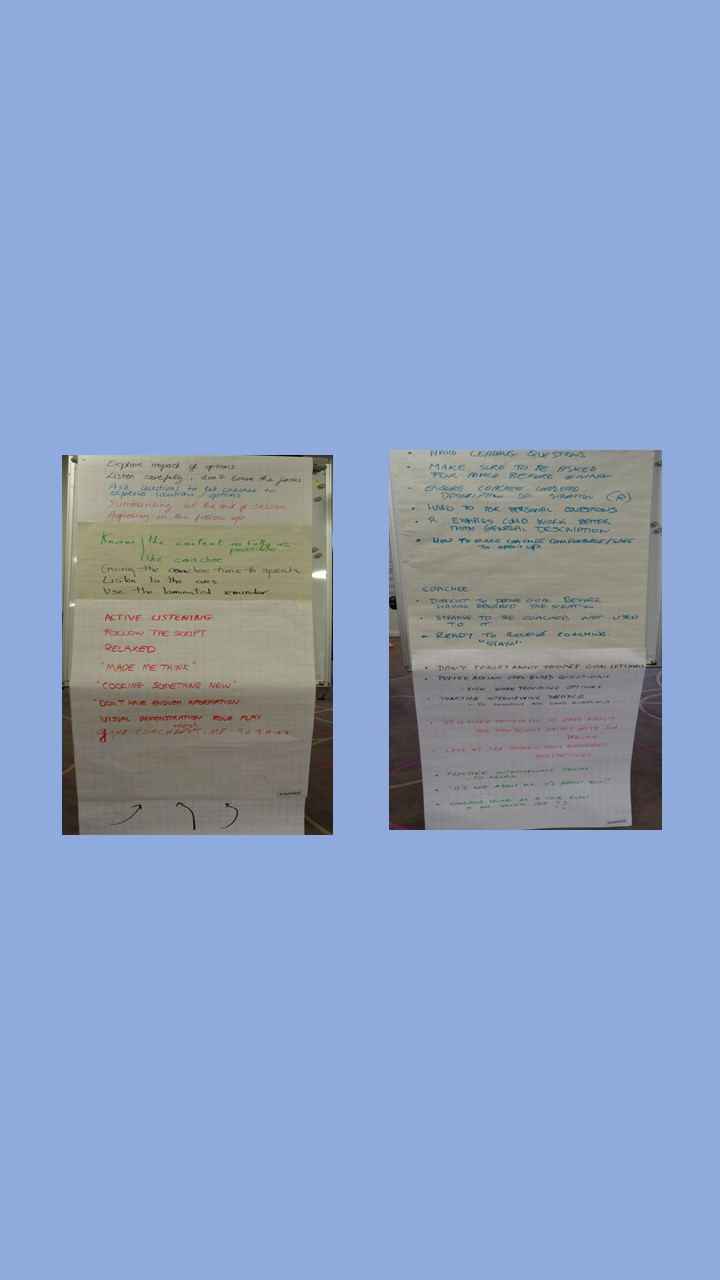 Explore impact of options
Listen carefully, don't loose the focus
Ask questions to let coachee to
explore solutions / options
Summarising at the end of session
Agreeing on the follow up
Know the context as fully as
possible
the coachee
Giving the coachee time to speak
Listen to the cues
Use the laminated reminder
ACTIVE LISTENING
FOLLOW THE SCRIPT
RELAXED
"MADE ME THINK"
"COOKING SOMETHING NEW"
"DON'T HAVE ENOUGH INFORMATION
VISUAL DEMONSTRATION ROLE PLAY
enough
GIVE COACHEE TIME TO THINK
AVOID LEADING QUESTIONS
MAKE SURE TO BE ASKED
FOR ADVICE BEFORE GIVING
ENSURE COACHEE COMPLETED
DESCRIPTION OF SITUATION (R)
HARD TO ASK PERSONAL QUESTIONS
R EXAMPLES COULD WORK BETTER
THAN GENERAL DESCRIPTION
HOW TO MAKE COACHEE COMFORTABLE/SAFE
TO OPEN UP
COACHEE
DIFFICULT TO DEFINE GOAL BEFORE
HAVING DESCRIBED THE SITUATION
STRANGE TO BE COACHED, NOT USED
TO IT
READY TO RECEIVE COACHING.
"START"
DON'T FORGET ABOUT PROPER GOAL SETTING
PREFER ASKING OPEN ENDED QUESTIONS
EVEN WHEN PROVIDING OPTIONS
PRACTICE INTERVIEWING PEOPLE
LOOK AT THE PROBLEM FROM DIFFERENT
PERSPECTIVES
PRACTICE INTERVIEWING PEOPLE
TO RELAX
"IT'S NOT ABOUT ME, IT'S ABOUT YOU!"